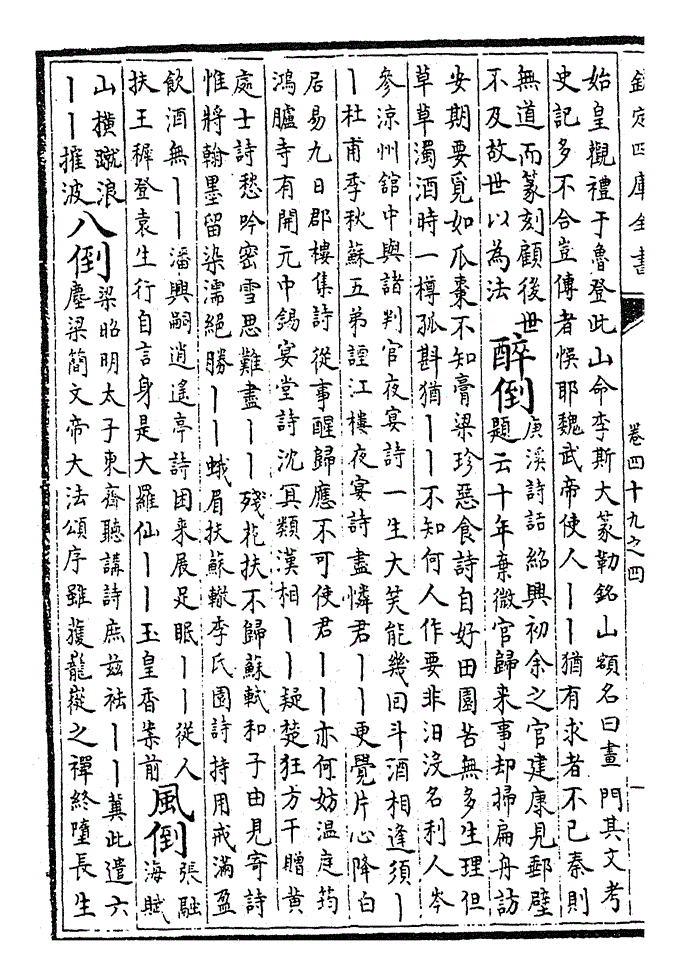 欽定四庫全書
卷四十九之四
始皇觀禮于魯登此山命李斯大篆勒銘山嶺名曰晝門其文考
史記多不合豈傳者悞耶魏武帝使人丨丨猶有求者不已秦則
無道而篆刻顧後世
不及故世以為法
醉倒
庚溪詩話紹興初余之官建康見郵壁
題云十年棄微官歸来事却掃扁舟訪
安期要覓如瓜棗不知膏粱珍惡食詩自好田園苦無多生理但
草草濁酒時一樽孤斟猶丨丨不知何人作要非汨没名利人岑
參涼州舘中與諸判官夜宴詩一生大笑能幾囘斗酒相逢須丨
丨杜甫季秋蘇五弟諲江樓夜宴詩盡憐君丨丨更覺片心降白
居易九日郡樓集詩從事醒歸應不可使君丨丨亦何妨温庭筠
鴻臚寺有開元中錫宴堂詩沈冥類漢相丨丨疑楚狂方干贈黄
處士詩愁吟密雪思難盡丨丨殘花扶不歸蘇軾和子由見寄詩
惟將翰墨留染濡絕勝丨丨蛾眉扶蘇轍李氏園詩持用戒滿盈
飲酒無丨丨潘興嗣逍遥亭詩困来展足眠丨丨從人
扶王穉登袁生行自言身是大羅仙丨丨玉皇香案前
風倒
張融
海賦
山橫蹴浪
丨丨摧波
八倒
梁昭明太子東齋聽講詩庶兹袪丨丨冀此遣六
塵梁簡文帝大法頌序雖獲龍嶽之禪終墮長生